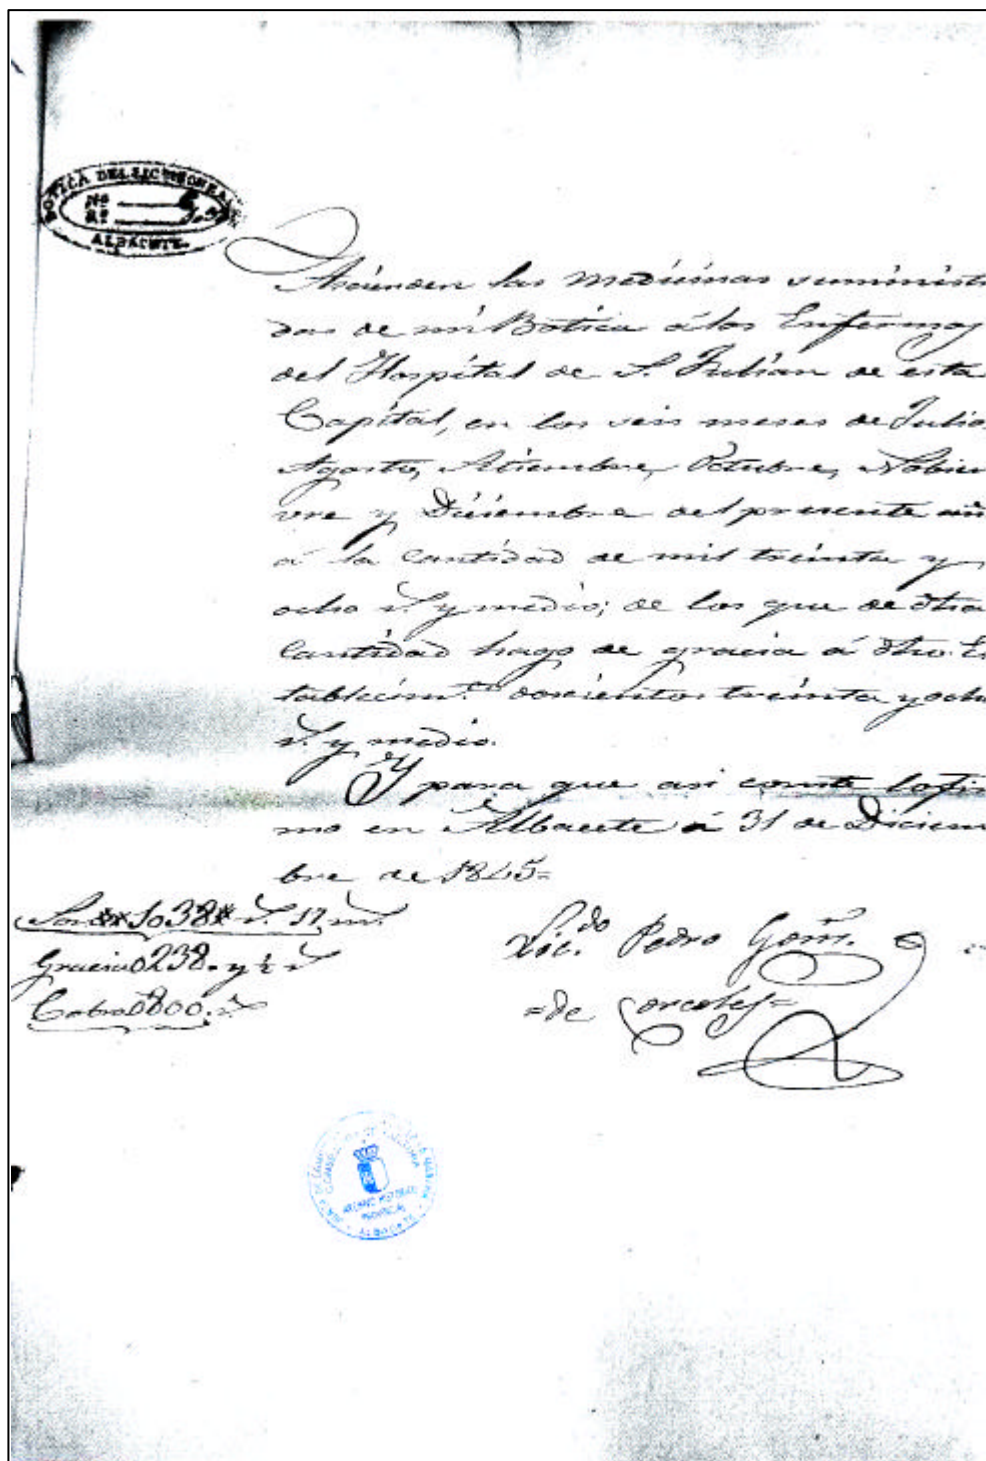 BOTICA DEL LIC
Nº
Rº
ALBACETE.
Ascienden las medicinas suminist
das de mi Botica á los Enfermos
del Hospital de S. Julian de esta
Capital, en los seis meses de Julio,
Agosto, Setiembre, Octubre, Nobiem
vre y Diciembre del presente añ
á la cantidad de mil treinta y
ocho r.^s y medio; de los que de dha
Cantidad hago de gracia á dho. Es
tablecim.^to doscientos treinta y ocho
r.^s y medio.
Y para que asi conste lo fir
mo en Albacete á 31 de Diciem
bre de 1845=
Son 1038 r.^s 17 m.^s
Gracia 0238. y ½ r.^s
Cobro 0800. r.^s
Lic.^do Pedro Gom.^z
=de Corcoles=
JUNTA DE COMUNIDADES DE CASTILLA-LA MANCHA
CONSEJERIA DE CULTURA
ARCHIVO HISTORICO
PROVINCIAL
ALBACETE